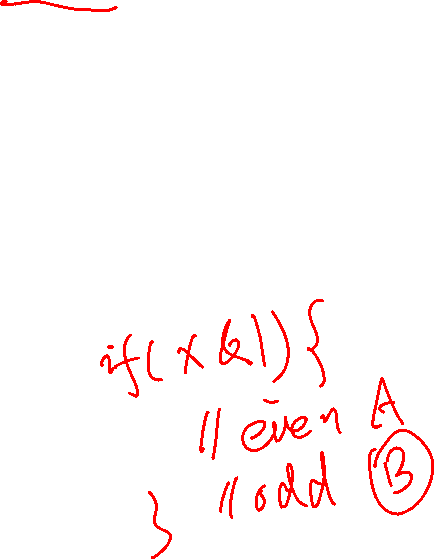 if(x&1){
//even A
//odd B
}